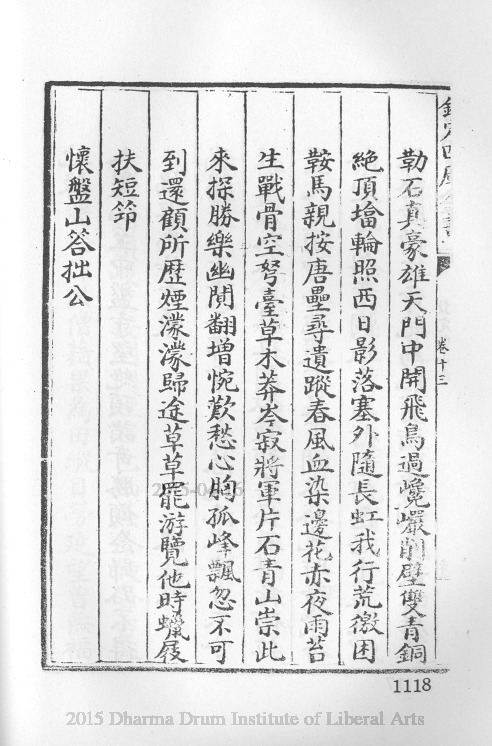 欽定四庫全書
卷十三
勒石真豪雄天門中開飛鳥過巉巖削壁雙青銅
絶頂墖輪照西日影落塞外隨長虹我行荒徼困
鞍馬親按唐壘尋遺蹤春風血染邊花赤夜雨苔
生戰骨空弩臺草木莽岑寂將軍片石青山崇此
來探勝樂幽閴翻增惋歎愁心胸孤峰飄忽不可
到還顧所歴煙濛濛歸途草草罷游覽他時蠟屐
扶短笻
懷盤山答拙公
1118
2015 Dharma Drum Institute of Liberal Arts